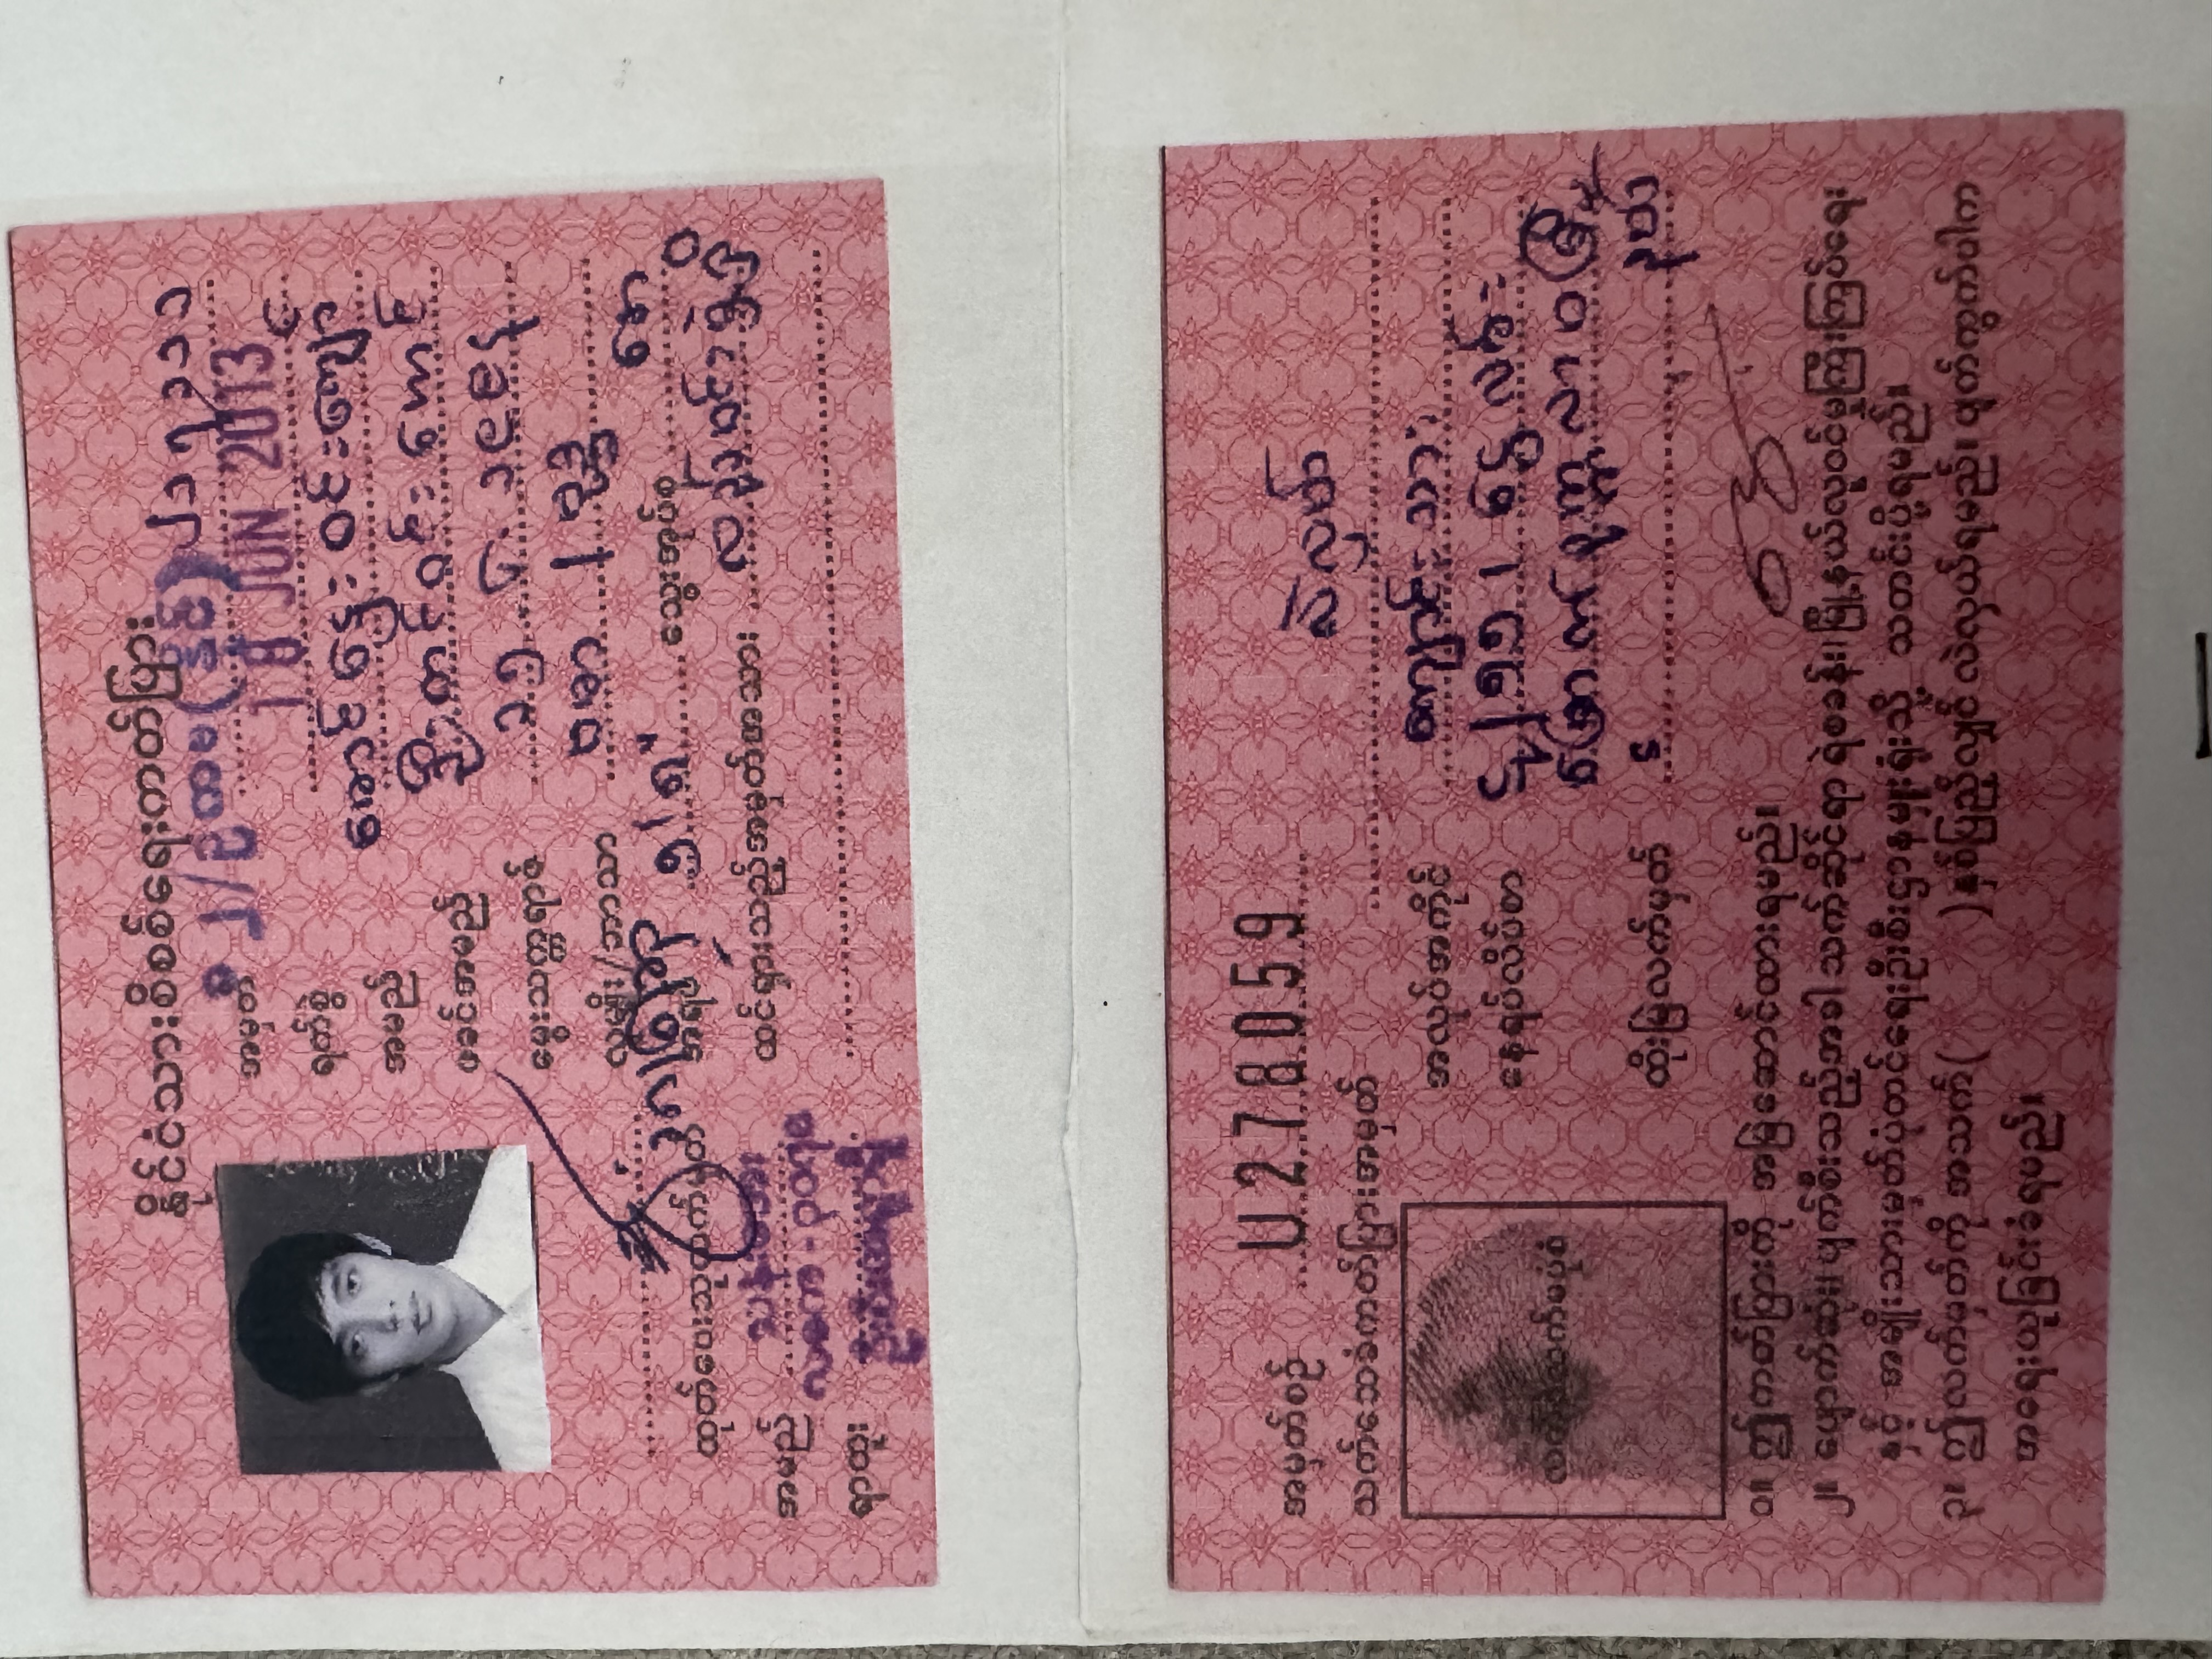 နိုင်ငံသားစိစစ်ရေးကတ်ပြား
အမှတ် ၁၂/ဥကမ(နိုင်) ၂၁၇၁၁၁
ရက်စွဲ 18 JUN 2013
အမည် အောင်နွေးဝင်းကျော်
ဖခင်အမည် ဦးတင်ဝင်းအောင်
မွေးသက္ကရာဇ် ၁၅.၆.၁၉၉၄
လူမျိုး/ဘာသာ ဗမာ / ဗုဒ္ဓ
အရပ် ၅' ၅" သွေးအုပ်စု အေ
ထုတ်ပေးသူလက်မှတ်
ထင်ရှားသည့်အမှတ်အသား
အမည် သန်းအေး
လဝက - ၃၀၇၈
ရာထူး ဦးစီးအရာရှိ
အမှတ်စဉ် U278059
လဲလှယ်
သက်သေခံကတ်ပြားအမှတ်
အလုပ်အကိုင် ကျောင်းသား
နေရပ်လိပ်စာ ၄/၅၅၊ ငွေလမ်း
မြောက်ဥက္ကလာပမြို့နယ်
ထိုးမြဲလက်မှတ်
လက်ဝဲလက်မပုံစံ
၁။ ဤကတ်ပြားကို အမြဲဆောင်ထားရမည်။
၂။ ပျောက်ဆုံး၊ ပျက်စီးသည့်အခါ သက်ဆိုင်ရာ ရဲစခန်း၊ မြို့နယ်လူဝင်မှုကြီးကြပ်ရေး
နှင့် အမျိုးသားမှတ်ပုံတင်ရေးဦးစီးဌာနမှူးရုံးသို့ သတင်းပို့ရမည်။
၃။ ဤလက်မှတ်ကို အသက်( )နှစ်ပြည့်လျှင် လဲလှယ်ရမည်။ ပျက်ကွက်ပါက
အရေးယူခြင်းခံရမည်။